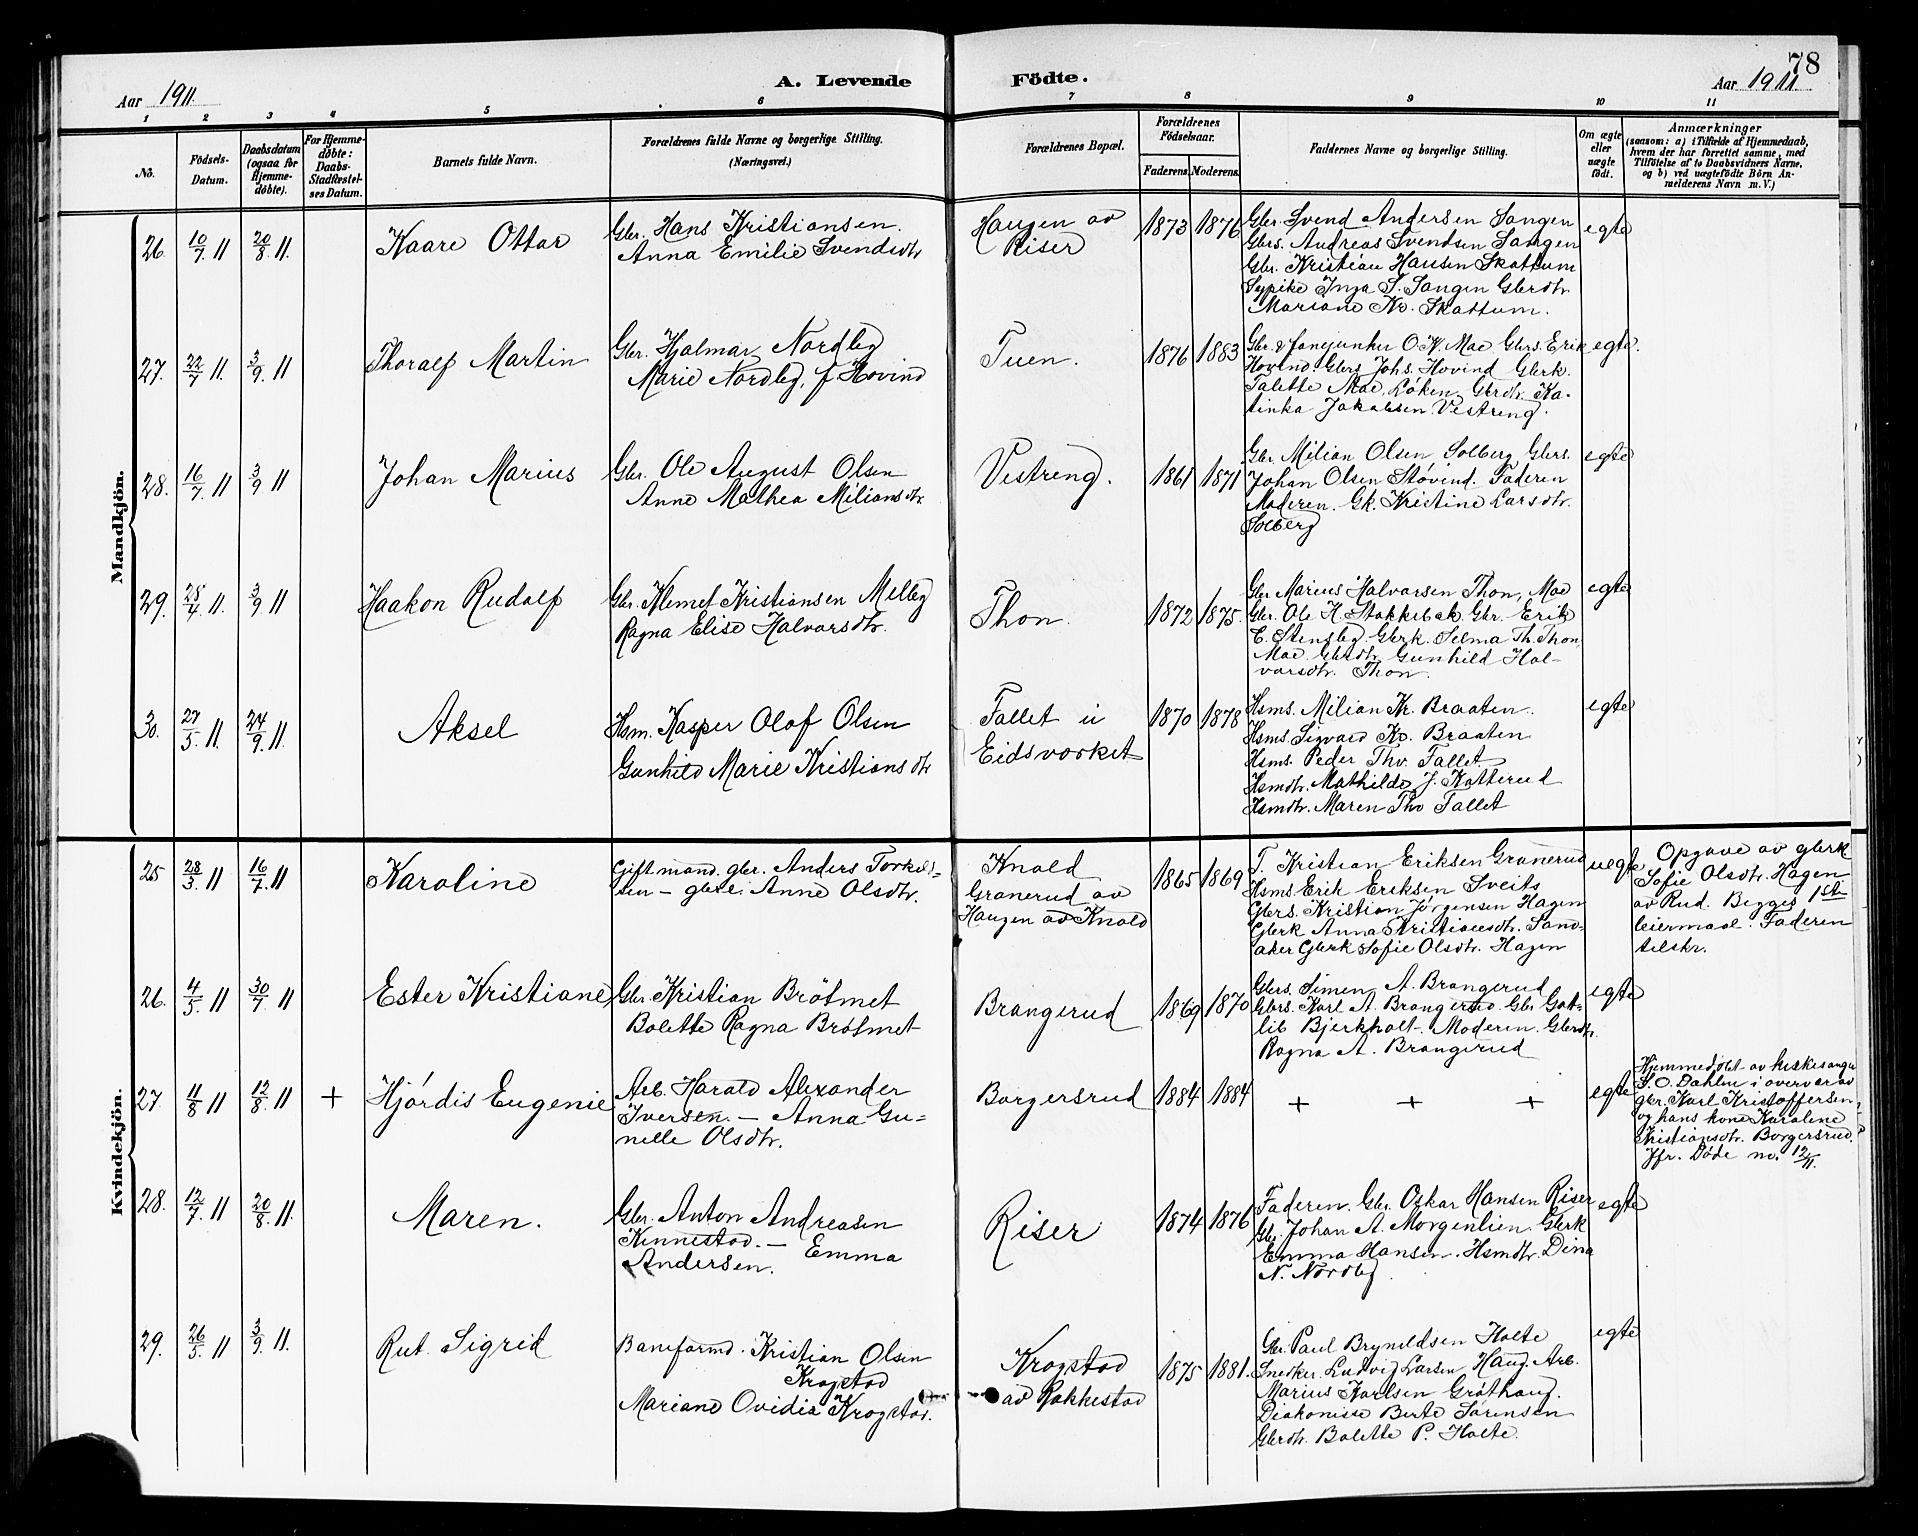 78
Aar 1911.
A. Levende
Födte.
Aar 1911
1 2 3 4 5 6 7 8 9 10 11
No.
Födsels-
Datum.
Daabsdatum
(ogsaa for
Hjemme-
döbte).
For Hjemme-
döbte:
Daabs-
Stadfæstel-
ses Datum.
Barnets fulde Navn.
Forældrenes fulde Navne og borgerlige Stilling.
(Næringsvei.)
Forældrenes Bopæl.
Forældrenes
Födselsaar.
Faderens.
Moderens.
Faddernes Navne og borgerlige Stilling.
Om ægte
eller
uægte
født.
Anmærkninger
(saasom: a) i Tilfælde af Hjemmedaab,
hvem der har forrettet samme, med
Tilföielse af to Daabsvidners Navne,
og b) ved uægtefödte Börn An-
melderens Navn m. V.)
Mandkjön.
26. 10/7 11 20/8 11.
Kaare Ottar
Gbr. Hans Kristiansen.
Anna Emilie Svendsdtr
Haugen av
Riser
1873 1876
Gbr. Svend Andersen Sangen
Gbrs. Andreas Svendsen Sangen
Gbr. Kristian Hansen Skattum
Sypike Inga S. Sangen Gbrdtr.
Mariane Kr. Skattum.
egte
27. 22/7 11. 3/9 11
Thoralf Martin
Gbr. Hjalmar Nordby
Marie Nordby, f. Hovind
Tuen.
1876 1883
Gbr. & fanejunker O. K. Moe Gbrs. Erik
Hovind. Gbrs Johs. Hovind Gbrk.
Talette Moe, Løken, Gbrdtr. Ka-
tinka Jakobsen Vestreng.
egte.
28. 16/7 11 3/9 11
Johan Marius
Gbr. Ole August Olsen
Anne Mathea Miliansdtr.
Vestreng.
1861 1871
Gbr. Milian Olsen Solberg Gbrs.
Johan Olsen Støvind. Faderen
Moderen. Gk. Kristine Larsdtr.
Solberg
egte
29. 28/4 11. 3/9 11
Haakon Rudolf
Gbr. Klemet Kristiansen Melby
Ragna Elise Halvorsdtr.
Thon.
1872 1875.
Gbr Marius Halvorsen Thon, Moe
Gbr. Ole H. Stokkebæk Gbr. Erik
E. Stensby Gbrk. Selma Th. Thon,
Moe Gbrdtr. Gunhild Hal-
vorsdtr. Thon.
egte
30. 27/5 11. 24/9 11.
Aksel
Hsm. Kasper Olaf Olsen
Gunhild Marie Kristiansdtr
Fallet u
Eidsvorket
1870 1878
Hsms. Milian Kr. Braaten.
Hsms. Sigvard Kr. Braaten
Hsms. Peder Thv. Fallet
Hsmdtr. Mathilde J. Katterud
Hsmdtr. Maren Thv Fallet
egte
Kvindekjön.
25 28/3. 11 16/7. 11
Karoline
Gift mand. gbr. Anders Torkild-
sen – gbrk: Anne Olsdtr.
Knold
Granerud av
Haugen av Knold
1865 1869
T. Kristian Eriksen Granerud
Hsms. Erik Eriksen Sveits
Gbrs. Kristian Jørgensen Hagen
Gbrk Anna Kristiansdtr. Sand-
aker Gbrk Sofie Olsdtr. Hagen
uegte
Opgave av gbrk
Sofie Olsdtr. Hagen
av Rud. Begges 1ste
leiermaal. Faderen
tilstr.
26. 4/5. 11 30/7 11
Ester Kristiane
Gbr. Kristian Brøtmet
Bolette Ragna Brøtmet
Brangerud
1869 1870
Gbrs. Simen A. Brangerud
Gbrs. Karl A. Brangerud. Gbr. Got-
lib Bjerkholt. Moderen. Gbrdtr.
Ragna A. Brangerud
egte
27. 11/8 11 12/8. 11 +
Hjørdis Eugenie
Arb. Harald Alexander
Iversen. – Anna Gu-
nelle Olsdtr.
Borgersrud
1884 1884
+ + +
egte
Hjemmedøbt av kirkesanger
S. O. Dahlen i overvær av
gbr. Karl Kristoffersen
og hans kone Karoline
Kristiansdtr. Borgersrud.
Jfr. Døde no. 12/11.
28. 12/7. 11 20/8. 11.
Maren.
Gbr. Anton Andreasen
Kinnestad. – Emma
Andersen.
Riser
1874 1876
Faderen. Gbr. Oskar Hansen Riser
Gbr. Johan A. Morgenlien Gbrk
Emma Hansen. Hsmdtr. Dina
N. Nordby.
egte
29. 26/5. 11 3/9. 11.
Rut Sigrid
Baneformd. Kristian Olsen
Krogstad
Mariane Ovidia Krogstad.
Krogstad
av Rakkestad
1875 1881.
Gbr. Paul Bryneldsen Holte
Snedker Ludvig Larsen Haug. Arb.
Marius Karlsen Grøthaug.
Diakonisse Berte Sørensen
Gbrdtr. Bolette P. Holte.
egte